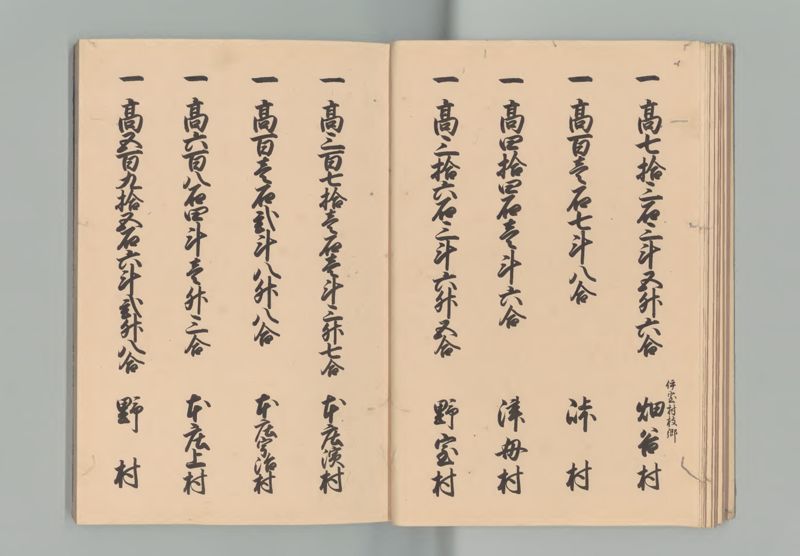 一 高七拾三石三斗五升六合 畑谷村
伊室村枝郷
一 高百壱石七斗八合 泊村
一 高四拾四石壱斗六合 津母村
一 高三拾六石三斗六升五合 野室村
一 高三百七拾壱石壱斗三升七合 本庄浜村
一 高百壱石弐斗八升八合 本庄宇治村
一 高六百八石四斗壱升三合 本庄上村
一 高五百九拾五石六斗弐升八合 野村